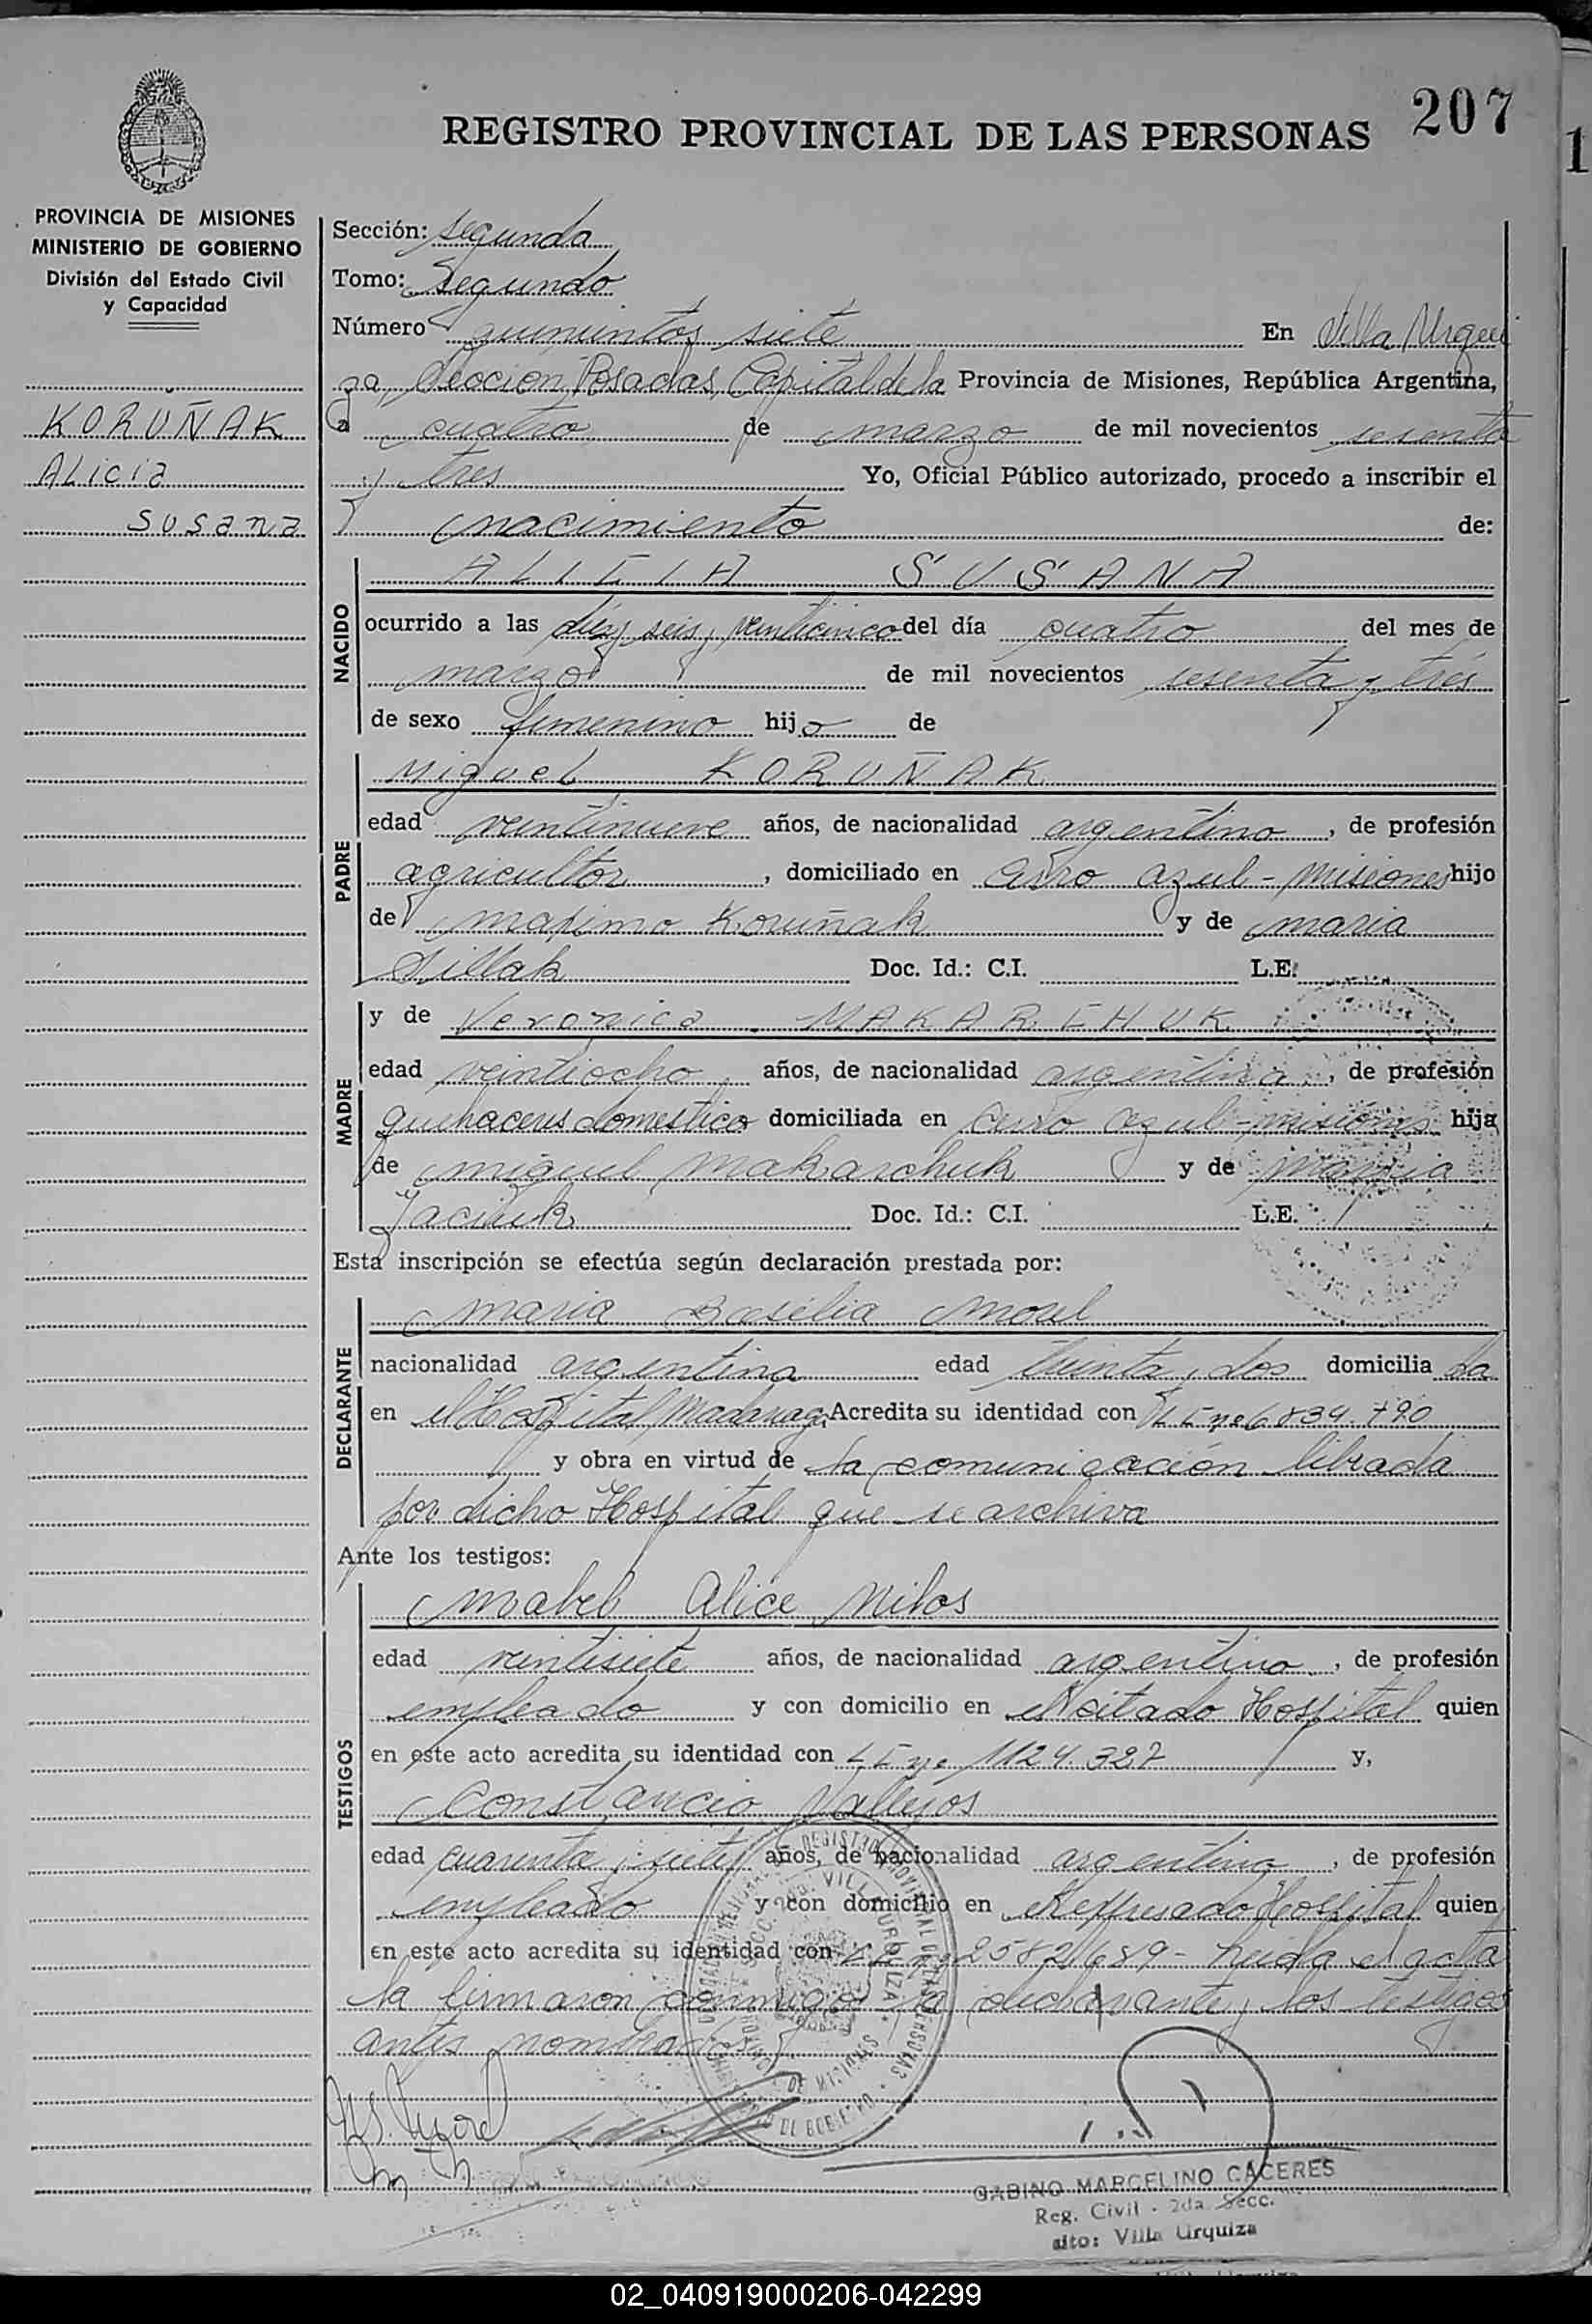 207
REGISTRO PROVINCIAL DE LAS PERSONAS
1
PROVINCIA DE MISIONES
MINISTERIO DE GOBIERNO
División del Estado Civil
y Capacidad
KORUÑAK
ALicia
Susana
Sección: segunda
Tomo: Segundo
Número quinientos siete En Villa Urqui
za, Sección, Posadas, Capital de la Provincia de Misiones, República Argentina,
a cuatro de marzo de mil novecientos sesenta
y tres Yo, Oficial Público autorizado, procedo a inscribir el
nacimiento de:
NACIDO
ALICIA SUSANA
ocurrido a las diez seis y veinticinco del día cuatro del mes de
marzo de mil novecientos sesenta y tres
de sexo femenino hija de
PADRE
Miguel KORUÑAK
edad veintinueve años, de nacionalidad argentino, de profesión
agricultor, domiciliado en Cerro azul - Misiones hijo
de maximo Koruñak y de maria
Doc. Id.: C.I. L.E.
MADRE
y de Veronica MAKARCHUK
edad veintiocho años, de nacionalidad argentina, de profesión
quehaceres domestico domiciliada en Cerro azul - misiones hija
de miguel makarchuk y de maria
Doc. Id.: C.I. L.E.
Esta inscripción se efectúa según declaración prestada por:
DECLARANTE
Maria Basilia Morel
nacionalidad argentina edad treinta y dos domicilia da
en el Hospital Madariaga Acredita su identidad con L E nº 6834.790
y obra en virtud de la comunicación librada
por dicho Hospital que se archiva
Ante los testigos:
TESTIGOS
Mabel Alice Milos
edad veintisiete años, de nacionalidad argentina, de profesión
empleado y con domicilio en el citado Hospital quien
en este acto acredita su identidad con L E nº 1124.327 y,
Constancio Vallejos
edad cuarenta y siete años, de nacionalidad argentino, de profesión
empleado y con domicilio en el expresado Hospital quien
en este acto acredita su identidad con L E nº 2582.689 - Leida el acta
la firmaron conmigo la declarante y los testigos
antes nombrados
GABINO MARCELINO CACERES
Reg. Civil - 2da. Secc.
aito: Villa Urquiza
02_040919000206-042299